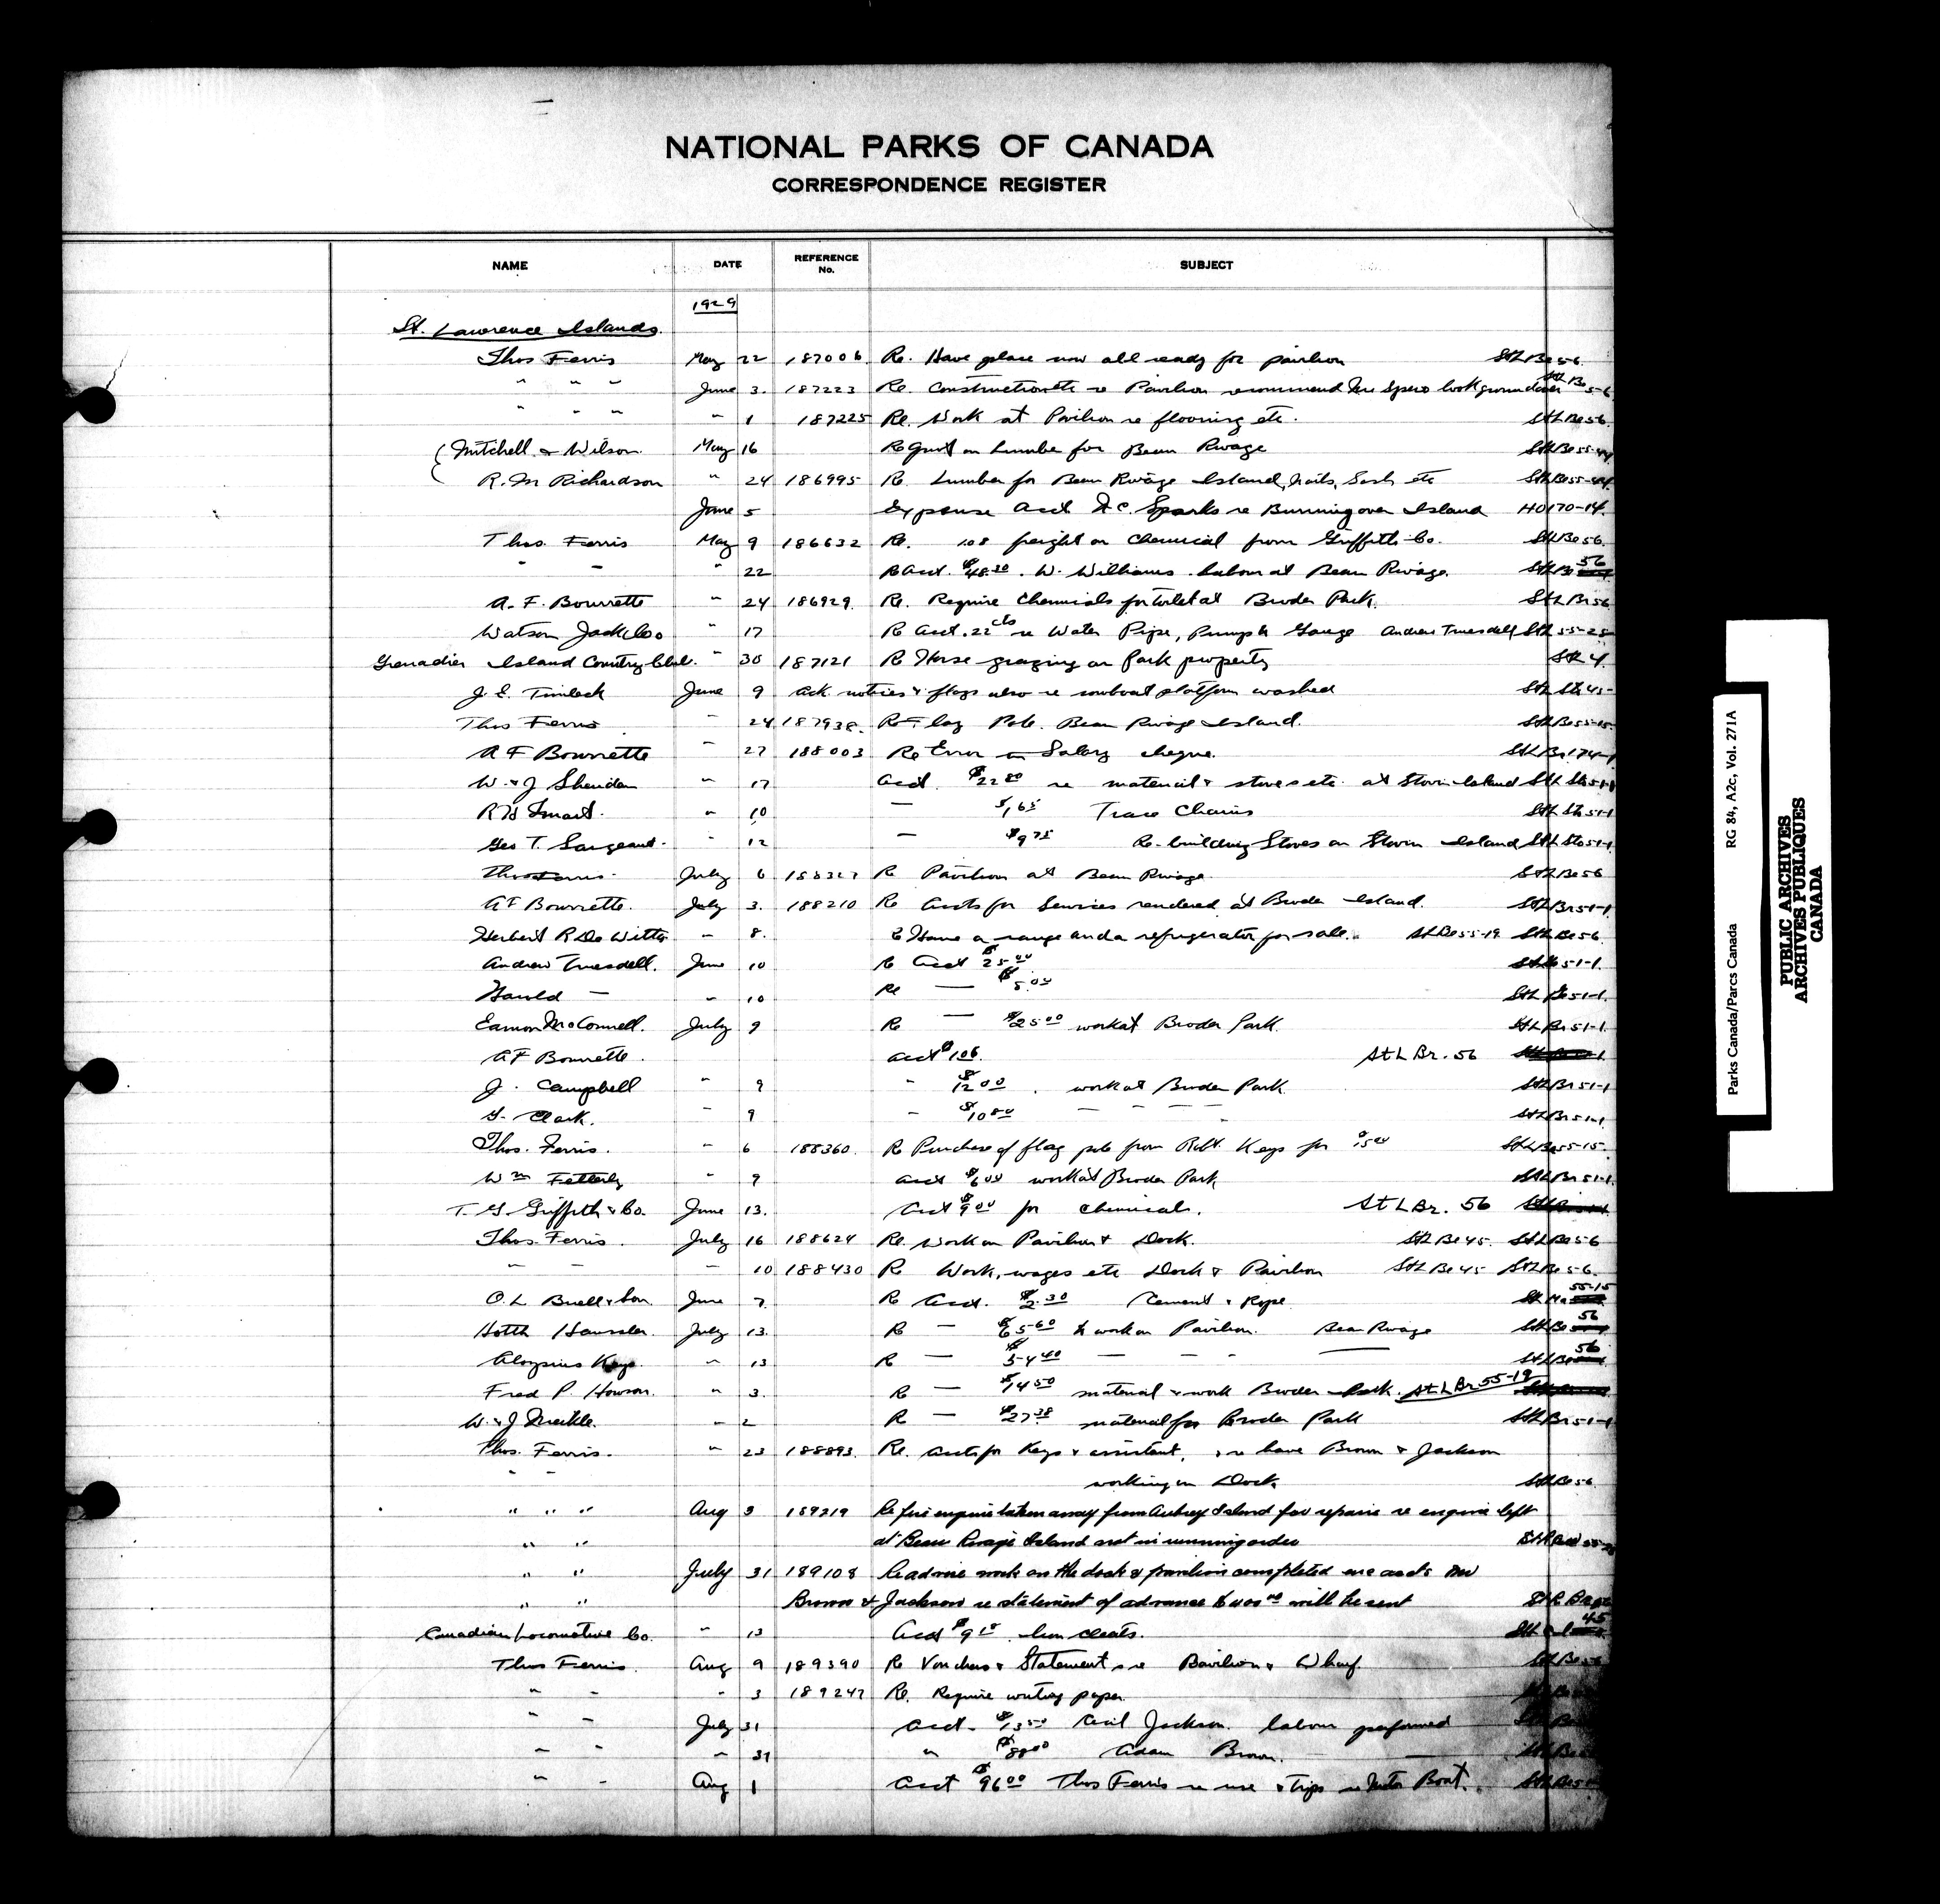 NATIONAL PARKS OF CANADA
CORRESPONDENCE REGISTER
NAME DATE REFERENCE No. SUBJECT
1929
St. Lawrence Islands.
Thos Ferris May 22 187006 Re. Have place now all ready for pavilion StLBe56.
" " " June 3. 187223 Re. Construction etc re Pavilion recommend Mr Spero look ground over StLBe56
" " " " 1 187225 Re. Work at Pavilion re flooring etc. StLBe56.
Mitchell & Wilson May 16 Re Quot on Lumber for Beau Rivage StLBe55-44
R. M Richardson " 24 186995 Re. Lumber for Beau Rivage Island, nails, Sash etc StLBe55-44
June 5 Expense Acct F.C. Sparks re Burning over Island HO170-14.
Thos. Ferris May 9 186632 Re. 108 freight on Chemical from Griffith Co. StLBe56.
" " " 22 Re Acct. $48.30. W. Williams labour at Beau Rivage. StLBe 56
A. F. Bourrette " 24 186929. Re. Require Chemicals for toilet at Broder Park. StLBr56
Watson Jack & Co " 17 Re Acct. 22 cts re Water Pipe, Pump & Gauge Andrew Truesdell StL 55-25
Grenadier Island Country Club. " 30 187121 Re Horse grazing on Park property StL 4.
J. E. Timleck June 9 Ack notices & flags also re rowboat platform washed StL St 45-
Thos Ferris " 24 187938. Re Flag Pole. Beau Rivage Island. StLBe55-15
A F Bourrette " 27 188003 Re Error in Salary cheque. StLBr174-1
W. & J Sheridan " 17 Acct. $22.80 re material & stoves etc. at Stovin Island StL St51-1
R H Smart. " 10 — $1.65 Trace Chains StL St51-1
Geo T. Sargeant. " 12 — $9.75 Re-building Stoves on Stovin Island StL St51-1
Thos Ferris July 6 188327 Re Pavilion at Beau Rivage. StLBe56
AF Bourrette. July 3. 188210 Re Accts for Services rendered at Broder Island. StLBr51-1.
Herbert R De Witte " 8. Re Have a range and a refrigerator for sale. StLBe55-19 StLBe56.
Andrew Truesdell. June 10 Re Acct $25.00 51-1.
Harold — " 10 Re — $5.00 51-1.
Eamon McConnell. July 9 Re — $25.00 work at Broder Park. StLBr51-1.
AF Bourrette. Acct $1.06. StLBr. 56
J. Campbell " 9 " $12.00. work at Broder Park StLBr51-1
G. Clark. " 9 " $10.80 — — — — StLBr51-1
Thos. Ferris. " 6 188360. Re Purchase of flag pole from Robt. Keys for $15.00 StLBe55-15.
Wm Fetterly " 9 Acct $6.00 work at Broder Park StLBr51-1.
T. G. Griffith & Co. June 13. Acct $9.00 for chemicals. StLBr. 56
Thos. Ferris. July 16 188624 Re. Work on Pavilion & Dock. StLBe45. StLBe56
— — — 10 188430 Re Work, wages etc Dock & Pavilion StLBe45 StLBe56.
O. L Buell & Son. June 7. Re Acct. $2.30 Cement & Rope. 55-15
July 13. Re — $65.60 to work on Pavilion. Beau Rivage StLBe 56
Aloysius Keys " 13 Re — $54.40 — — — StLBe 56
Fred P. Howson. " 3. Re — $14.50 material & work Broder Park. StLBr55-19
W. & J Meikle. " 2 Re — $27.38 material for Broder Park StLBr51-1
Thos. Ferris. " 23 188893. Re. accts for Keys & assistant, & re have Brown & Jackson
" " working on Dock StLBe56
" " " Aug 3 189219 Re fire engine taken away from Aubrey Island for repairs re engine left
" " at Beau Rivage Island not in running order
" " July 31 189108 Re advise work on the dock & pavilion completed enc accts Mr
" " Brown & Jackson re statement of advance $400.00 will be sent
Canadian Locomotive Co. " 13 Acct $9.10. Iron cleats. 45
Thos Ferris. Aug 9 189390 Re Vouchers & Statements re Pavilion & Wharf. StLBe56
" " " 3 189247 Re. Require writing paper.
" " July 31 Acct. $13.50 Cecil Jackson. labour performed
" " " 31 " $88.00 Adam Brown. —
" " Aug 1 Acct $96.00 Thos Ferris re use & trips re Motor Boat. StLBe5
RG 84, A2c, Vol. 271A
Parks Canada/Parcs Canada
PUBLIC ARCHIVES
ARCHIVES PUBLIQUES
CANADA